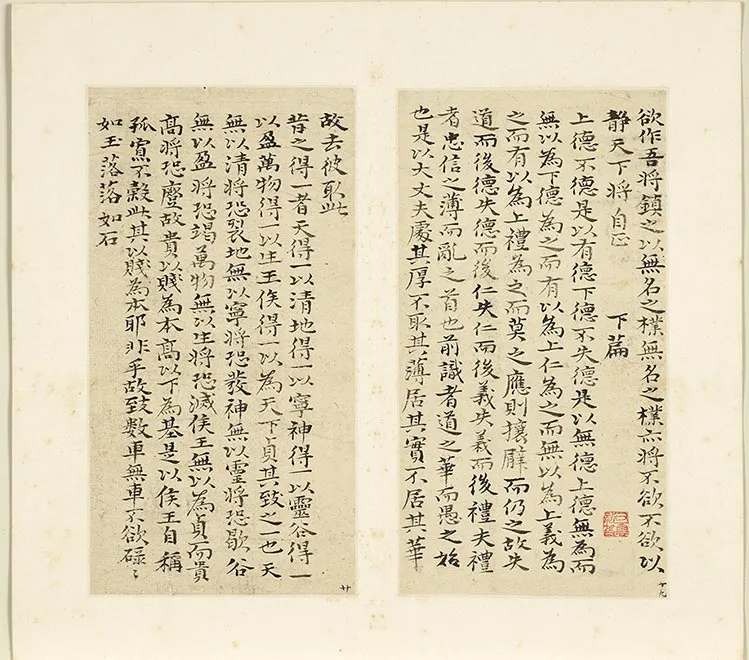 欲作吾將鎮之以無名之樸無名之樸亦將不欲不欲以
静天下將自正 下篇
上德不德是以有德下德不失德是以無德上德無為而
無以為下德為之而有以為上仁為之而無以為上義為
之而有以為上禮為之而莫之應則攘臂而仍之故失
道而後德失德而後仁失仁而後義失義而後禮夫禮
者忠信之薄而亂之首也前識者道之華而愚之始
也是以大丈夫處其厚不取其薄居其實不居其華
十九
故去彼取此
昔之得一者天得一以清地得一以寧神得一以靈谷得一
以盈萬物得一以生王侯得一以為天下貞其致之一也天
無以清將恐裂地無以寧將恐發神無以靈將恐歇谷
無以盈將恐竭萬物無以生將恐滅侯王無以為貞而貴
高將恐蹷故貴以賤為本高以下為基是以侯王自稱
孤寡不穀此其以賤為本耶非乎故致數車無車不欲碌〻
如玉落落如石
廿